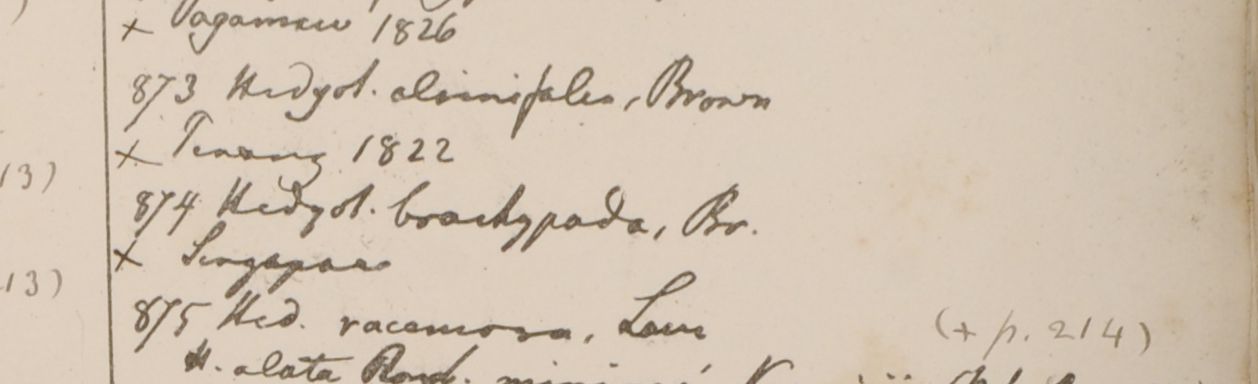 13)
13)
x 1826
873 Hedyot. alsinifolia, Brown
x Penang 1822
874 Hedyot. brachypoda, Br.
x Singapore
875 Hed. racemosa, Lam (+ p. 214)
H. alata Roxb.